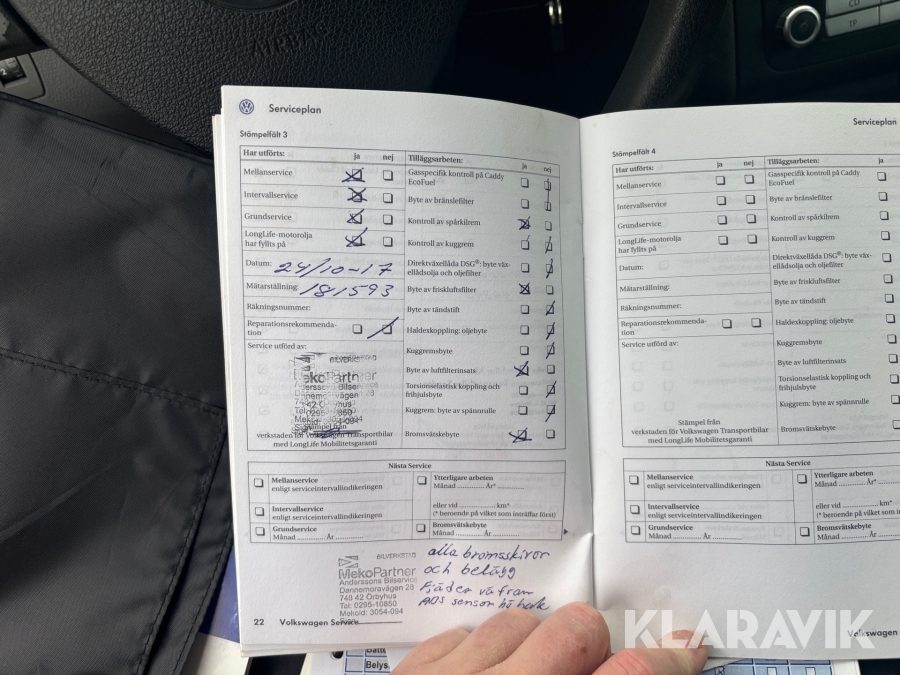 AIRBAG
CD
TP
2
Serviceplan
Stämpelfält 3
Har utförts: ja nej
Mellanservice
Intervallservice
Grundservice
LongLife-motorolja
har fyllts på
Datum: 24/10-17
Mätarställning: 181593
Räkningsnummer:
Reparationsrekommenda-
tion
Service utförd av:
BILVERKSTAD
MekoPartner
Anderssons Bilservice
Dannemoravägen 28
742 42 Örbyhus
Tel: 0295-10850
Mekoid: 3054-094
Stämpel från
verkstaden för Volkswagen Transportbilar
med LongLife Mobilitetsgaranti
Tilläggsarbeten: ja nej
Gasspecifik kontroll på Caddy
EcoFuel
Byte av bränslefilter
Kontroll av spårkilrem
Kontroll av kuggrem
Direktväxellåda DSG®: byte väx-
ellådsolja och oljefilter
Byte av friskluftsfilter
Byte av tändstift
Haldexkoppling: oljebyte
Kuggremsbyte
Byte av luftfilterinsats
Torsionselastisk koppling och
frihjulsbyte
Kuggrem: byte av spännrulle
Bromsvätskebyte
Nästa Service
Mellanservice
enligt serviceintervallindikeringen
Intervallservice
enligt serviceintervallindikeringen
Grundservice
Månad ............ År ............
Ytterligare arbeten
Månad ............ År* ............
eller vid ............ km*
(* beroende på vilket som inträffar först)
Bromsvätskebyte
Månad ............ År ............
BILVERKSTAD
MekoPartner
Anderssons Bilservice
Dannemoravägen 28
748 42 Örbyhus
Tel: 0295-10850
Mekoid: 3054-094
alla bromsskivor
och belägg
Fjäder vä fram
ABS sensor hö bak
22 Volkswagen Service
Serviceplan
Stämpelfält 4
Har utförts: ja nej
Mellanservice
Intervallservice
Grundservice
LongLife-motorolja
har fyllts på
Datum:
Mätarställning:
Räkningsnummer:
Reparationsrekommenda-
tion
Service utförd av:
Stämpel från
verkstaden för Volkswagen Transportbilar
med LongLife Mobilitetsgaranti
Tilläggsarbeten: ja
Gasspecifik kontroll på Caddy
EcoFuel
Byte av bränslefilter
Kontroll av spårkilrem
Kontroll av kuggrem
Direktväxellåda DSG®: byte väx-
ellådsolja och oljefilter
Byte av friskluftsfilter
Byte av tändstift
Haldexkoppling: oljebyte
Kuggremsbyte
Byte av luftfilterinsats
Torsionselastisk koppling och
frihjulsbyte
Kuggrem: byte av spännrulle
Bromsvätskebyte
Nästa Service
Mellanservice
enligt serviceintervallindikeringen
Intervallservice
enligt serviceintervallindikeringen
Grundservice
Månad ............ År ............
Ytterligare arbeten
Månad ............ År* ............
eller vid ............ km*
(* beroende på vilket som in
Bromsvätskebyte
Månad ............ År ............
Volkswagen
KLARAVIK
Belys